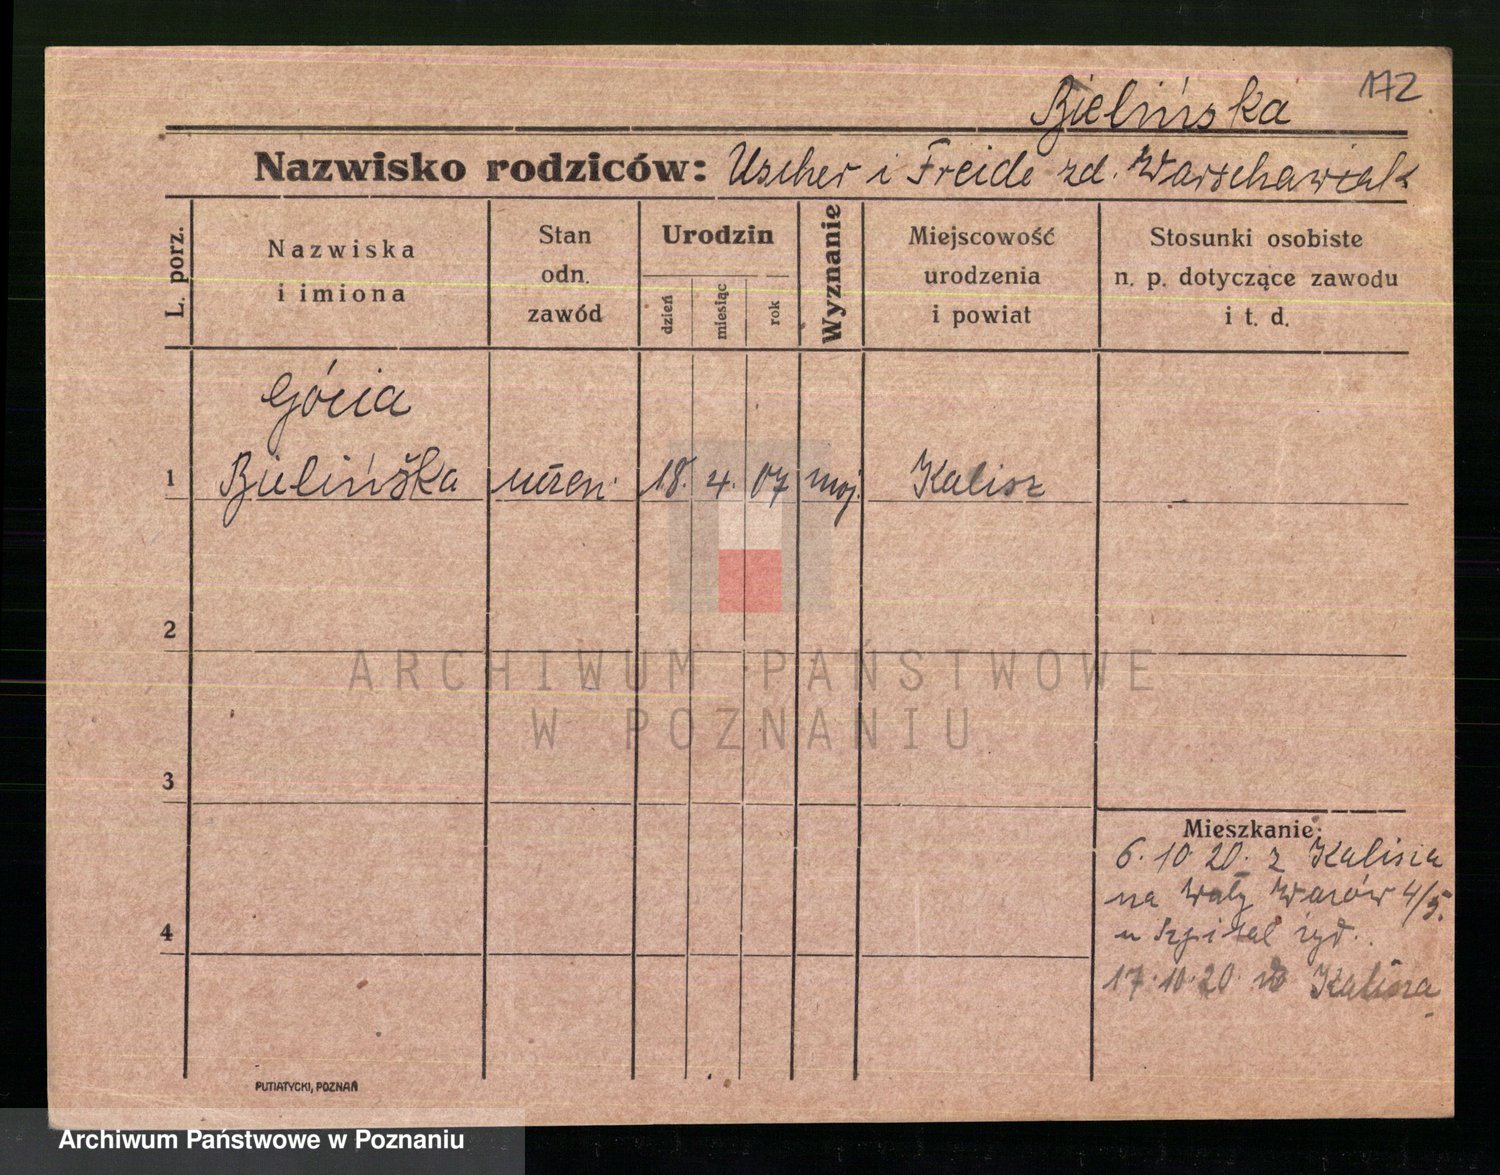 172
Bielińska
Nazwisko rodziców: Uscher i Freide zd. Warschawiak
L. porz.
Nazwiska
i imiona
Stan
odn.
zawód
Urodzin
dzień
miesiąc
rok
Wyznanie
Miejscowość
urodzenia
i powiat
Stosunki osobiste
n. p. dotyczące zawodu
i t. d.
Gócia
1 Bielińska uczen. 18. 4. 07 moj. Kalisz
2
ARCHIWUM PAŃSTWOWE
W POZNANIU
3
Mieszkanie:
6.10.20. z Kalisza
na Wały Wazów 4/5.
u Szpital żyd.
4
17.10.20 do Kalisza
PUTIATYCKI, POZNAŃ
Archiwum Państwowe w Poznaniu